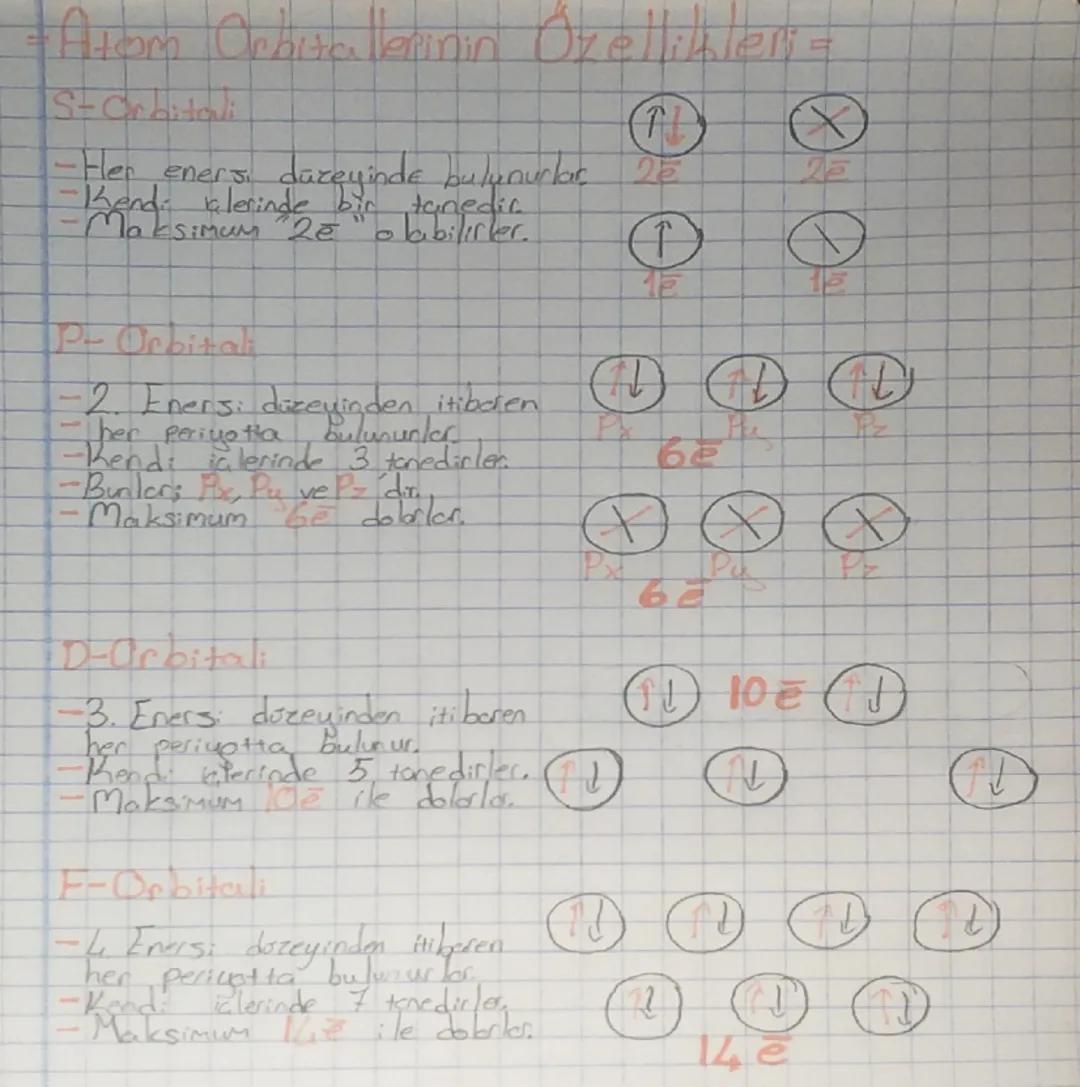 =Atom Orbitallerinin Özellikleri=
S-Orbitali
-Her enersi düzeyinde bulunurlar
2ē 2ē
-Kendi içlerinde bir tanedir.
-Maksimum "2ē" olabilirler.
1ē 1ē
P-Orbitali
-2. Enersi düzeyinden itibaren
Px Py Pz
- her periyotta bulunurlar
6ē
-Kendi içlerinde 3 tanedirler.
-Bunlar; Px, Py ve Pz'dir,
-Maksimum 6ē dolarlar.
Px Py Pz
6ē
D-Orbitali
10ē
-3. Enersi düzeyinden itibaren
her periyotta bulunur.
-Kendi içlerinde 5 tanedirler.
-Maksimum 10ē ile dolarlar.
F-Orbitali
-4 Enersi düzeyinden itibaren
her periyotta bulunurlar.
-Kendi içlerinde 7 tanedirler.
- Maksimum 14ē ile dolarlar.
14ē